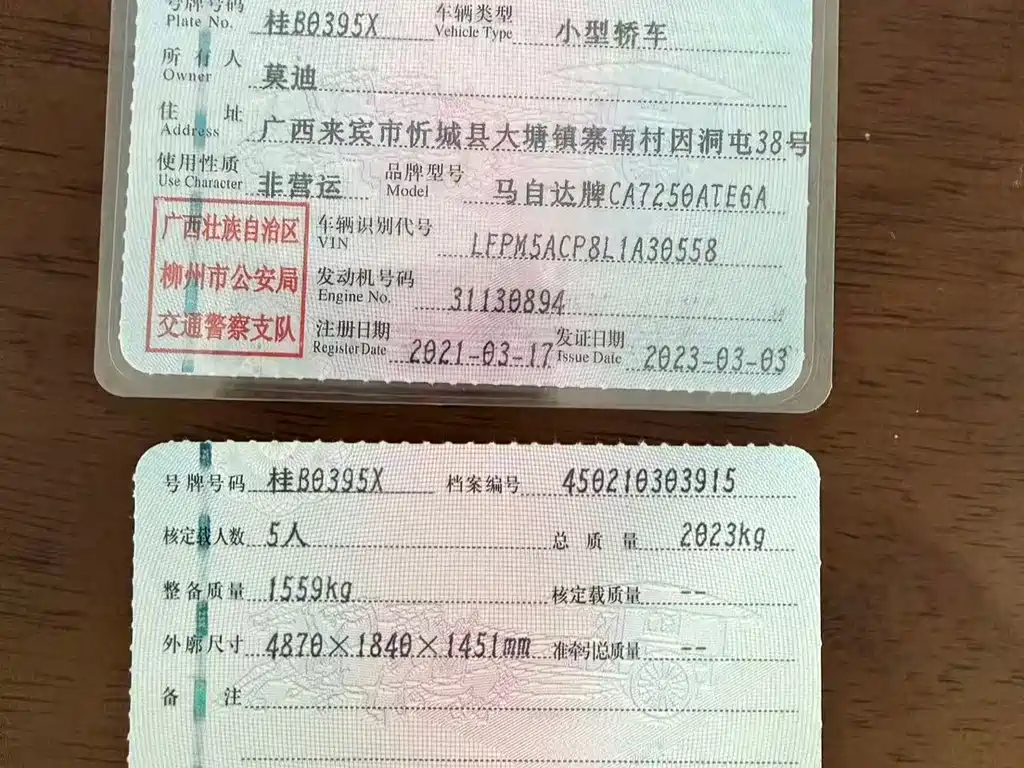 号牌号码 桂B0395X 车辆类型 小型轿车
Plate No. Vehicle Type
所有人 莫迪
Owner
住址 广西来宾市忻城县大塘镇寨南村因洞屯38号
Address
使用性质 非营运 品牌型号 马自达牌CA7250ATE6A
Use Character Model
广西壮族自治区
柳州市公安局
交通警察支队
车辆识别代号 LFPM5ACP8L1A30558
VIN
发动机号码 31130894
Engine No.
注册日期 2021-03-17 发证日期 2023-03-03
Register Date Issue Date
号牌号码 桂B0395X 档案编号 450210303915
核定载人数 5人 总质量 2023kg
整备质量 1559kg 核定载质量 --
外廓尺寸 4870×1840×1451mm 准牵引总质量 --
备注